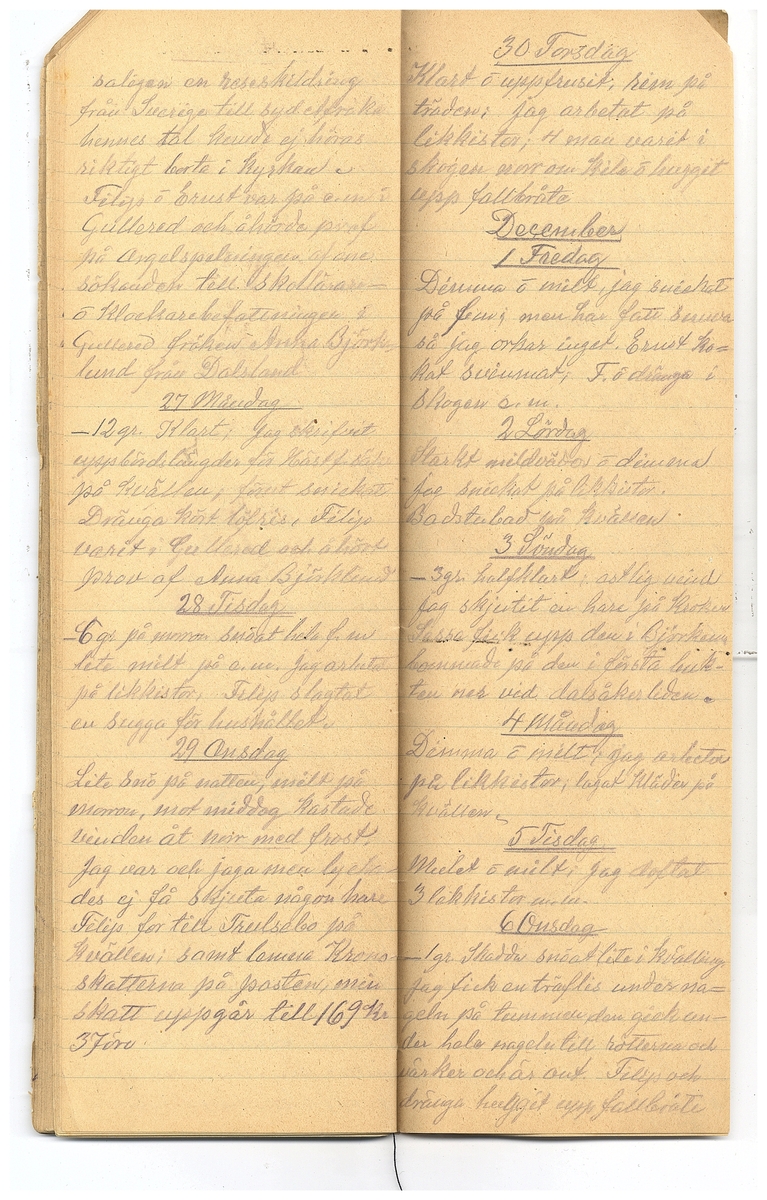 salogen en reseskildring
från Sverige till sydafrika
hennes tal kunde ej höras
riktigt borta i kyrkan.
Filip ō Ernst var på e.m i
Gullered och åhörde prof
på orgelspelningen af den
sökanden till skollärare=
ō Klockarebefattningen i
Gullered fröken Anna Björk=
lund från Dalsland
27 Måndag
-12gr. Klart; jag skrifvit
uppbördslängder för
på kvällen; förut snickat
Dränga kört Filip
varit i Gullered och åhört
prov af Anna Björklund
28 Tisdag
-6 gr på morron snöat hela f.m
lite milt på e.m. Jag arbetat
på likkistor, Filip slagtat
en sugga för hushållet.
29 Onsdag
Lite snö på natten, milt på
morron, mot middag kastade
vinden åt norr med frost.
Jag var och jaga men lycka=
des ej få skjuta någon hare
Filip for till Trulsabo på
kvällen; samt lemna Krono=
skatterna på posten, min
skatt uppgår till 169 Kr
37 öre.
30 Torsdag
Klart ō uppfrusit, rim på
träden; jag arbetat på
likkistor; 4 man varit i
skogen norr om Kile ō huggit
upp fallbråte
December
1 Fredag
Dimma ō milt, jag snickat
på f.m; men har fått snuva
så jag orkar inget. Ernst ko=
kat svinmat; F. ō dränga i
skogen e.m.
2 Lördag
Starkt mildväder ō dimma
jag snickat på likkistor.
Badstubad på kvällen
3 Söndag
-3gr. halfklart; ostlig vind
Jag skjutit en hare på Kroken
Sassa fick upp den i Björkenu
bommade på den i första buk=
ten ner vid dalsåkerleden.
4 Måndag
Dimma ō milt; jag arbetat
på likkistor; lagat kläder på
kvällen.
5 Tisdag
Mulet ō milt; jag doftat
3 likkistor m.m.
6 Onsdag
-1gr. snöat lite i kvällning
jag fick en träflis under na=
geln på tummen den gick un=
der hela nageln till rötterna och
värker och är ont. Filip och
dränga huggit upp fallbråte